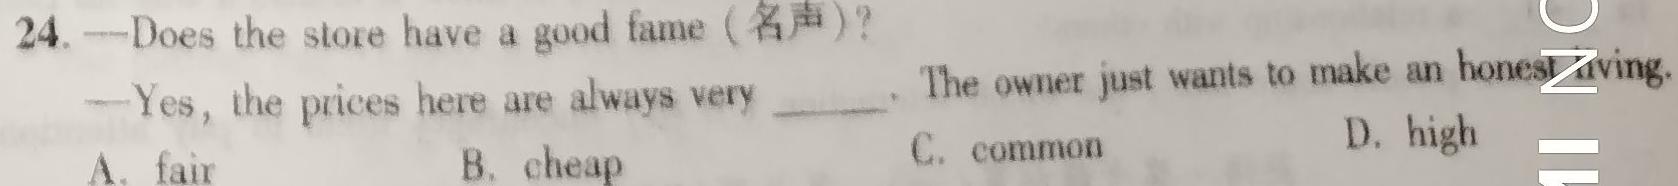 24. —Does the store have a good fame (名声)?
—Yes, the prices here are always very ______. The owner just wants to make an honest living.
A. fair B. cheap C. common D. high
MI NO